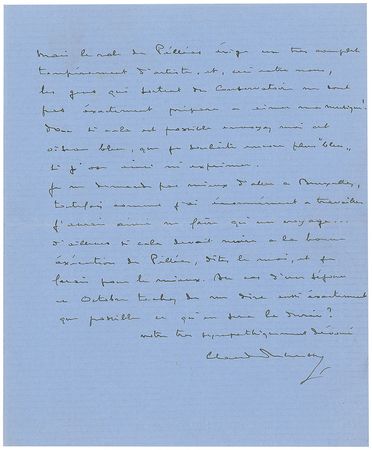 Mais le role de Pelléas exige un très complet
tempérament d'artiste, et, ceci entre nous,
les gens qui sortent du Conservatoire ne sont
pas exactement préparés à aimer ma musique!
Donc si cela est possible envoyez moi cet
oiseau bleu, que je souhaite moins "bleu",
si j'ose ainsi m'exprimer.
Je ne demande pas mieux d'aller a Bruxelles,
toutefois comme j'ai énormément a travailler
j'aurais aimé ne faire qu'un voyage...
d'ailleurs si cela devait nuire a la bonne
éxécution de Pélléas, dites le moi, et je
ferais pour le mieux. Au cas d'un séjour
en Octobre tachez de me dire aussi éxactement
que possible ce qu'en sera la durée?
votre très sympathiquement dévoué
Claude Debussy